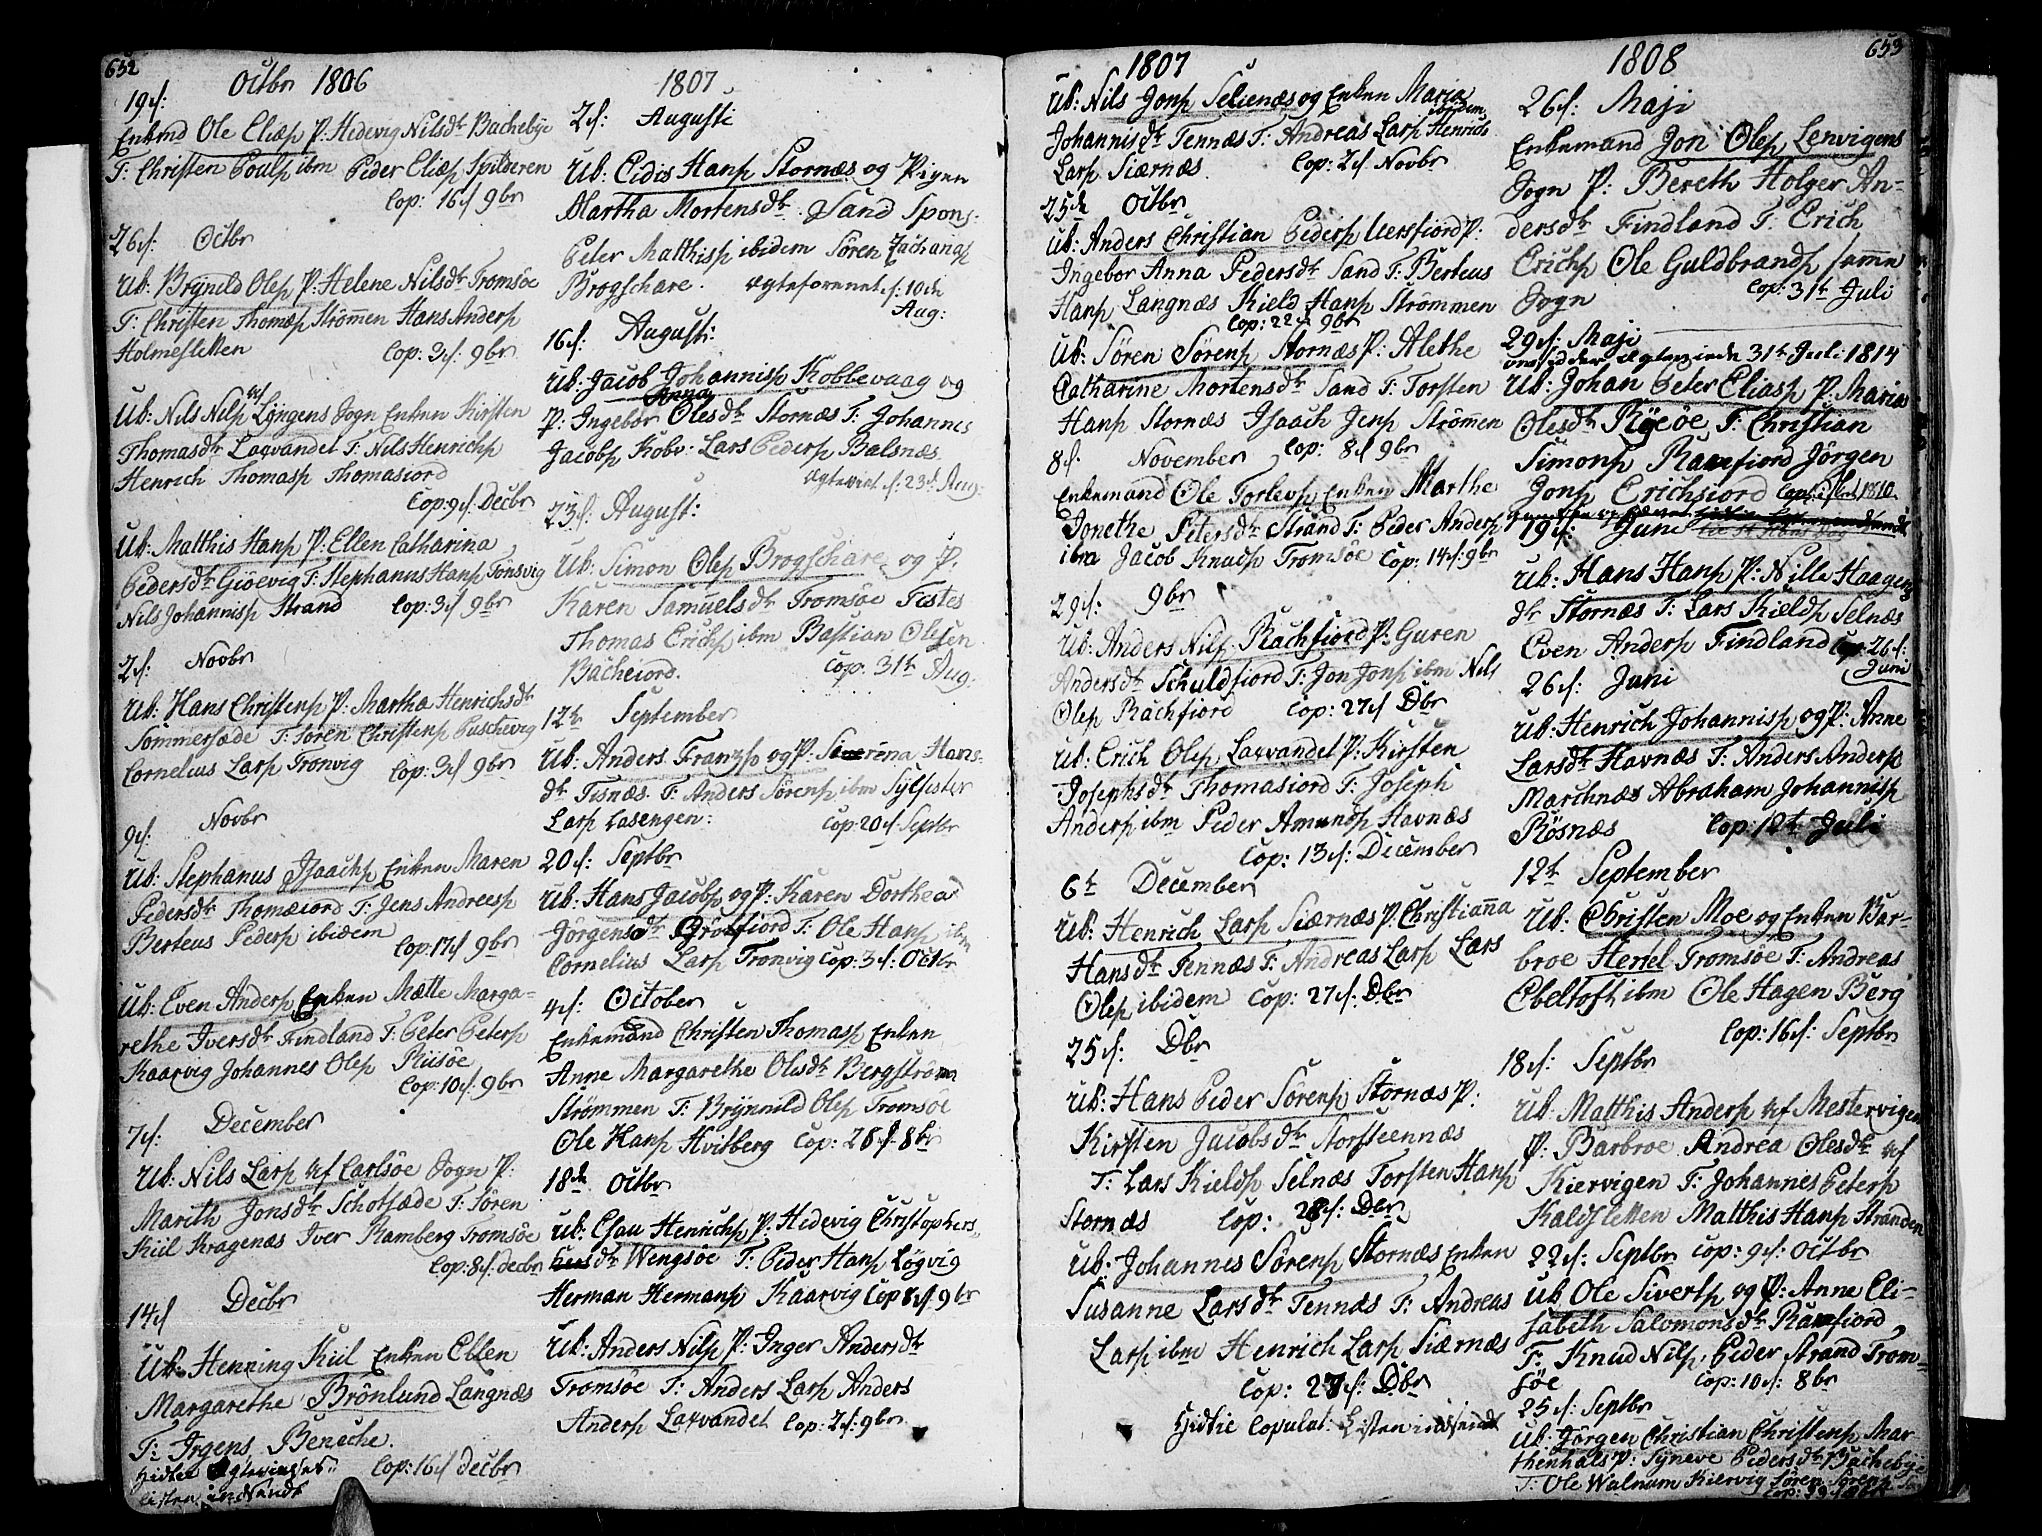 652
Octbr 1806
19d:
Enkmd Ole Eliæs P: Hedevig Nilsdtr Bachebye
T: Christen Pouls ibm Peder Eliæs Spilderen
Cop: 16d 9br
26d: Octbr
Ub: Brynild Oles P: Helene Nilsdtr Tromsøe
T: Christen Thomæs Strømen Hans Anders
Holmesletten Cop: 3d: 9br
Ub: Nils Nils af Lyngens Sogn Enken Kirsten
Thomasdtr Laxvandet T: Nils Henrichs
Henrich Thomas Thomasiord
Cop: 9d: Decbr
Ub: Matthis Hans P: Ellen Catharina
Pedersdtr Giøevig T: Stephanus Hans Tønsvig
Nils Johannis Strand Cop: 3d 9br
2d: Novbr
Ub: Hans Christens P: Martha Henrichsdtr
Sommersæde T: Søren Christens Buschevig
Cornelius Lars Tronvig Cop: 3d 9br
9d: Novbr
Ub: Stephanus Isaachs Enken Maren
Pedersdtr Thomæiord T: Jens Andrees
Berteus Peders ibidem Cop: 17d 9br
Ub: Even Anders Enken Mætte Marga-
rethe Iversdtr Findland T: Peter Peters
Kaarvig Johannes Oles Riisøe
Cop: 10d: 9br
7d: December
Ub: Nils Lars af Carlsøe Sogn P:
Marith Jonsdtr Schotsæde T: Søren
Kiil Kragenæs Iver Ramberg Tromsøe
Cop: 8d: decbr
14d Decbr
Ub: Henning Kiil Enken Ellen
Margarethe Brønlund Langnæs
T: Irgens Beneche.
Cop: 16d decbr
hidtil Ægteviesses
listen indsendt
1807
2d: Augusti
Ub: Eidis Hans Stornæs og Pigen
Martha Mortensdtr Sand Spons:
Peter Matthis ibidem Søren Zacharias
Brogschare. Ægteforenet d: 10de
Aug:
16d: Augusti:
Ub: Jacob Johannis Kobbevaag og
P: Ingebor Anna Olesdtr Stornæs T: Johannes
Jacobs Kobv: Lars Peders Balsnæs
Ægteviet d: 23d: Aug:
23d: August:
Ub: Simon Oles Brogschare og P.
Karen Samuelsdtr Tromsøe Testes
Thomas Erichs ibm Bastian Olesen
Bacheiord. Cop: 31te Aug:
12te September
Ub: Anders Franzs og P: Severina Hans-
dtr Tisnæs T: Anders Sørens ibm Sylfester
Lars Lasengen: Cop: 20d Septbr
20d: Septbr
Ub: Hans Jacobs og P: Karen Dorthea
Jørgensdtr Grøtfiord T: Ole Hans ibm
Cornelius Lars Tronvig Cop: 3d: Octbr
4d: October
Enkemand Christen Thomas Enken
Anne Margarethe Olesdtr Bergstrøm
Strømmen T: Brynnild Oles Tromsøe
Ole Hans Hvitberg Cop: 28d 8br
18de Octbr
Ub: Esau Henrichs P: Hedevig Christophers-
dtr Wengsøe T: Peder Hans Løgvig
Herman Hermans Kaarvig Cop 8d: 9br
Ub: Anders Nils P: Inger Andersdtr
Tromsøe T: Anders Lars Anders
Anders Laxvandet Cop: 2d: 9br
1807
Ub: Nils Jons Selienæs og Enken Maria
Johannisdtr Tennæs T: Andreas Lars ibidem Henrich
Lars Siærnæs. Cop: 2d Novbr
25de Octbr
Ub: Anders Christian Peders Uersfiord P:
Ingebor Anna Pedersdtr Sand T: Berteus
Hans Langnæs Kield Hans Strømmen
Cop: 22d 9br
Ub: Søren Sørens Stornæs P: Alethe
Catharine Mortensdtr Sand T: Torsten
Hans Stornæs Isaach Jens Strømmen
8d. November Cop: 8d 9br
Enkemand Ole Torlevs Enken Marthe
Jonethe Petersdtr Strand T: Peder Anders
ibm Jacob Knuds Tromsøe Cop: 14d: 9br
29d: 9br
Ub: Anders Nils Rachfiord P: Guren
Andersdtr Schuldfiord T: Jon Jons ibm Nils
Oles Rachfiord Cop: 27d Dbr
Ub: Erich Oles Laxvandet P: Kirsten
Josephsdtr Thomasiord T: Joseph
Anders ibm Peder Amunds Havnæs
Cop: 13d: December
6te December
Ub: Henrich Lars Siærnæs P: Christianna
Hansdtr Tennæs T: Andreas Lars Lars
Oles ibidem Cop: 27d: Dbr
25d: Dbr
Ub: Hans Peder Sørens Stornæs P:
Kirsten Jacobsdtr Storsteennæs
T: Lars Kields Selnæs Torsten Hans
Stornæs Cop: 28d: Dbr
Ub: Johannes Sørens Stornæs Enken
Susanne Larsdtr Tennæs T: Andreas
Lars ibm Henrich Lars Siærnæs
Cop: 27d: Dbr
Hidtil Copulat: Listen indsendt
653
1808
26d: Maji
Enkemand Jon Oles Lenvigens
Sogn P: Bereth Holger An-
dersdtr Findland T: Erich
Erichs Ole Guldbrands samme
Sogn Cop: 31te Juli
29d: Maji
Ub: Johan Peter Elias P: Maria
Olesdtr Ryeøe T: Christian
Simons Ramfiord Jørgen
Jons Erichsiord
19d: Juni
Ub: Hans Hans P: Nille Haagens
dtr Stornæs T: Lars Kields Selnæs
Even Anders Findland Cop: 26d:
Juni
26d: Juni
Ub: Henrich Johannis og P: Anne
Larsdtr Havnæs T: Anders Anders
Marchnæs Abraham Johannis
Røsnæs Cop: 12te Juli
12te September
Ub: Christen Moe og Enken Bar-
broe Hertel Tromsøe T: Andreas
Ebeltoft ibm Ole Hagen Berg
Cop: 16d: Septbr
18d: Septbr
Ub: Matthis Anders af Mestervigen
P: Barbroe Andrea Olesdtr af
Kiervigen T: Johannes Peters
Kaldsletten Matthis Hans Stranden
22d: Septbr Cop: 9d: Octbr
Ub Ole Siverts og P: Anne Eli-
sabeth Salomonsdtr Ramfiord
T: Knud Nils, Peder Strand Trom-
søe Cop: 10d: 8br
25d: Septbr
Ub: Jørgen Christian Christens Mar-
thenhals P: Syneve Pedersdtr Bachebye
T: Ole Walnum Kiervig Søren Sørens